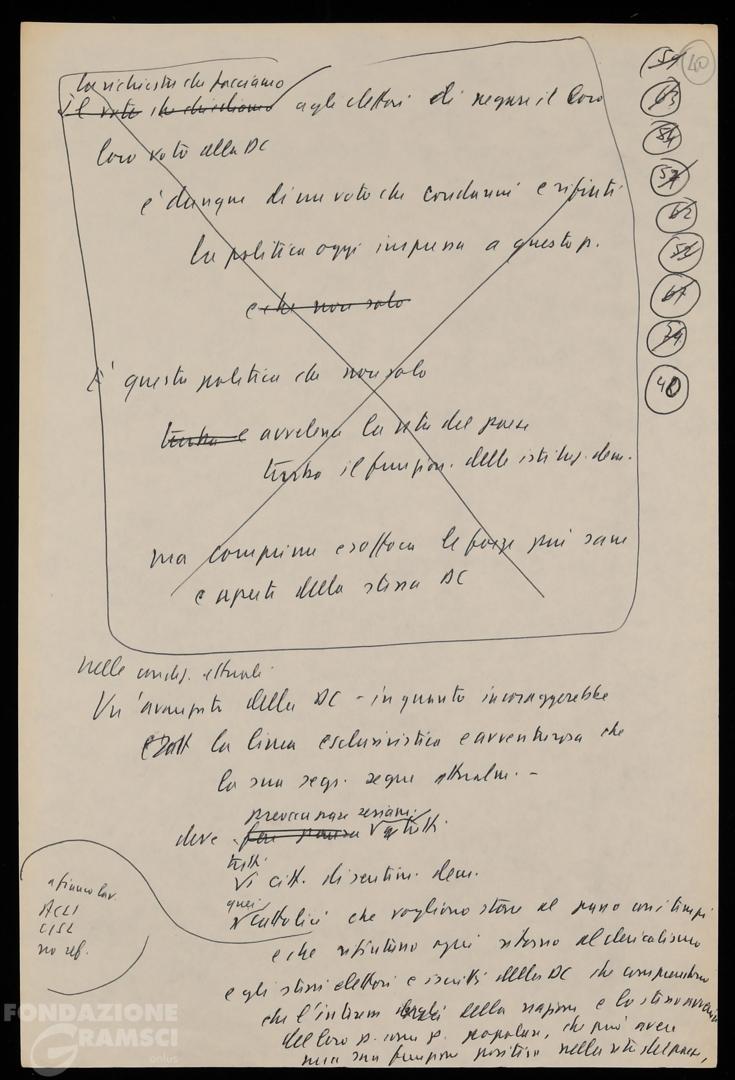 la richiesta che facciamo
il voto che chiediamo agli elettori di negare il loro
loro voto alla DC
è dunque di un voto che condanni e rifiuti
la politica oggi impressa a questo p.
e che non solo
E' questa politica che non solo
turba e avvelena la vita del paese
turba il funzion. delle istituz. dem.
ma comprime e soffoca le forze più sane
e aperte della stessa DC
nelle condiz. attuali
Un'avanzata della DC - in quanto incoraggerebbe
la linea esclusivistica e avventurosa che
la sua segr. segue attualm. -
preoccupare seriam.
deve far paura a tutti
tutti
i citt. di sentim. dem.
quei
cattolici che vogliono stare al passo con i tempi
e che rifiutano ogni ritorno al clericalismo
e gli stessi elettori e iscritti della DC che comprendono
che l'interesse della nazione e lo stesso avvenire
del loro p. come p. popolare, che può avere
una sua funzione positiva nella vita del paese,
a fianco lav.
ACLI
CISL
no ref.
59
40
63
84
57
62
52
67
39
40
FONDAZIONE
GRAMSCI
onlus